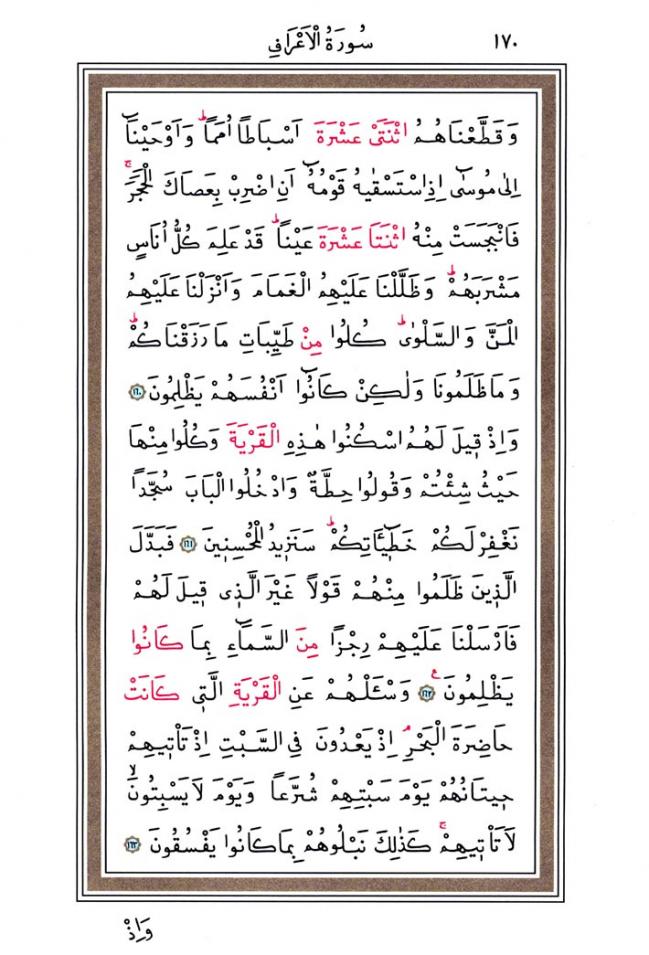 ١٧٠ سُورَةُ الْاَعْرَافِ
وَقَطَّعْنَاهُمُ اثْنَتَىْ عَشْرَةَ اَسْبَاطًا اُمَمًاۜ وَاَوْحَيْنَٓا
اِلٰى مُوسٰٓى اِذِ اسْتَسْقٰيهُ قَوْمُهُٓ اَنِ اضْرِبْ بِعَصَاكَ الْحَجَرَۚ
فَانْبَجَسَتْ مِنْهُ اثْنَتَا عَشْرَةَ عَيْنًاۜ قَدْ عَلِمَ كُلُّ اُنَاسٍ
مَشْرَبَهُمْۜ وَظَلَّلْنَا عَلَيْهِمُ الْغَمَامَ وَاَنْزَلْنَا عَلَيْهِمُ
الْمَنَّ وَالسَّلْوٰىۜ كُلُوا مِنْ طَيِّبَاتِ مَا رَزَقْنَاكُمْۜ
وَمَا ظَلَمُونَا وَلٰكِنْ كَانُٓوا اَنْفُسَهُمْ يَظْلِمُونَ ﴿١٦٠﴾
وَاِذْ قِيلَ لَهُمُ اسْكُنُوا هٰذِهِ الْقَرْيَةَ وَكُلُوا مِنْهَا
حَيْثُ شِئْتُمْ وَقُولُوا حِطَّةٌ وَادْخُلُوا الْبَابَ سُجَّدًا
نَغْفِرْ لَكُمْ خَطِٓيـَٔاتِكُمْۜ سَنَزِيدُ الْمُحْسِنِينَ ﴿١٦١﴾ فَبَدَّلَ
الَّذِينَ ظَلَمُوا مِنْهُمْ قَوْلًا غَيْرَ الَّذِى قِيلَ لَهُمْ
فَاَرْسَلْنَا عَلَيْهِمْ رِجْزًا مِنَ السَّمَٓاءِ بِمَا كَانُوا
يَظْلِمُونَ۟ ﴿١٦٢﴾ وَسْـَٔلْهُمْ عَنِ الْقَرْيَةِ الَّتِى كَانَتْ
حَاضِرَةَ الْبَحْرِۢ اِذْ يَعْدُونَ فِى السَّبْتِ اِذْ تَاْتِيهِمْ
حِيتَانُهُمْ يَوْمَ سَبْتِهِمْ شُرَّعًا وَيَوْمَ لَا يَسْبِتُونَۙ
لَا تَاْتِيهِمْۚ كَذٰلِكَ نَبْلُوهُمْ بِمَا كَانُوا يَفْسُقُونَ ﴿١٦٣﴾
وَاِذْ